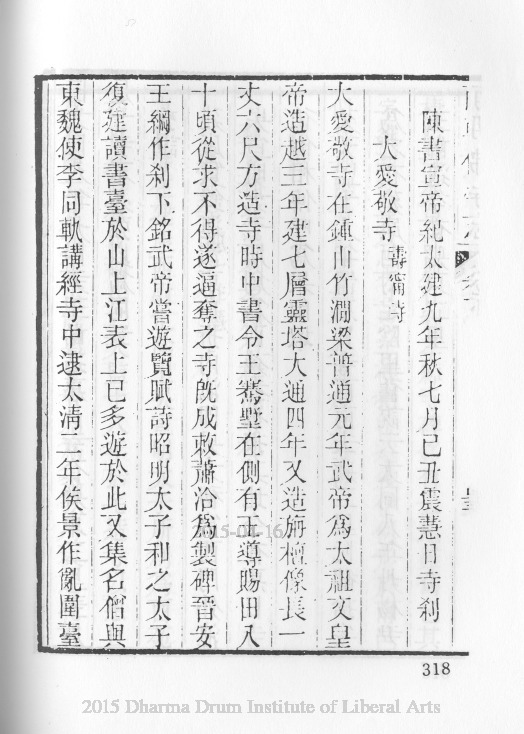 陳書宣帝紀太建九年秋七月己丑震慧日寺刹
大愛敬寺
大愛敬寺在鍾山竹澗梁普通元年武帝爲太祖文皇
帝造越三年建七層靈塔大通四年又造旃檀像長一
丈六尺方造寺時中書令王騫墅在側有王導賜田八
十頃從求不得遂逼奪之寺旣成敕蕭洽爲製碑晉安
王綱作刹下銘武帝嘗遊覽賦詩昭明太子和之太子
復建讀書臺於山上江表上巳多遊於此又集名僧與
東魏使李同軌講經寺中逮太清二年侯景作亂圍臺
318
2015 Dharma Drum Institute of Liberal Arts